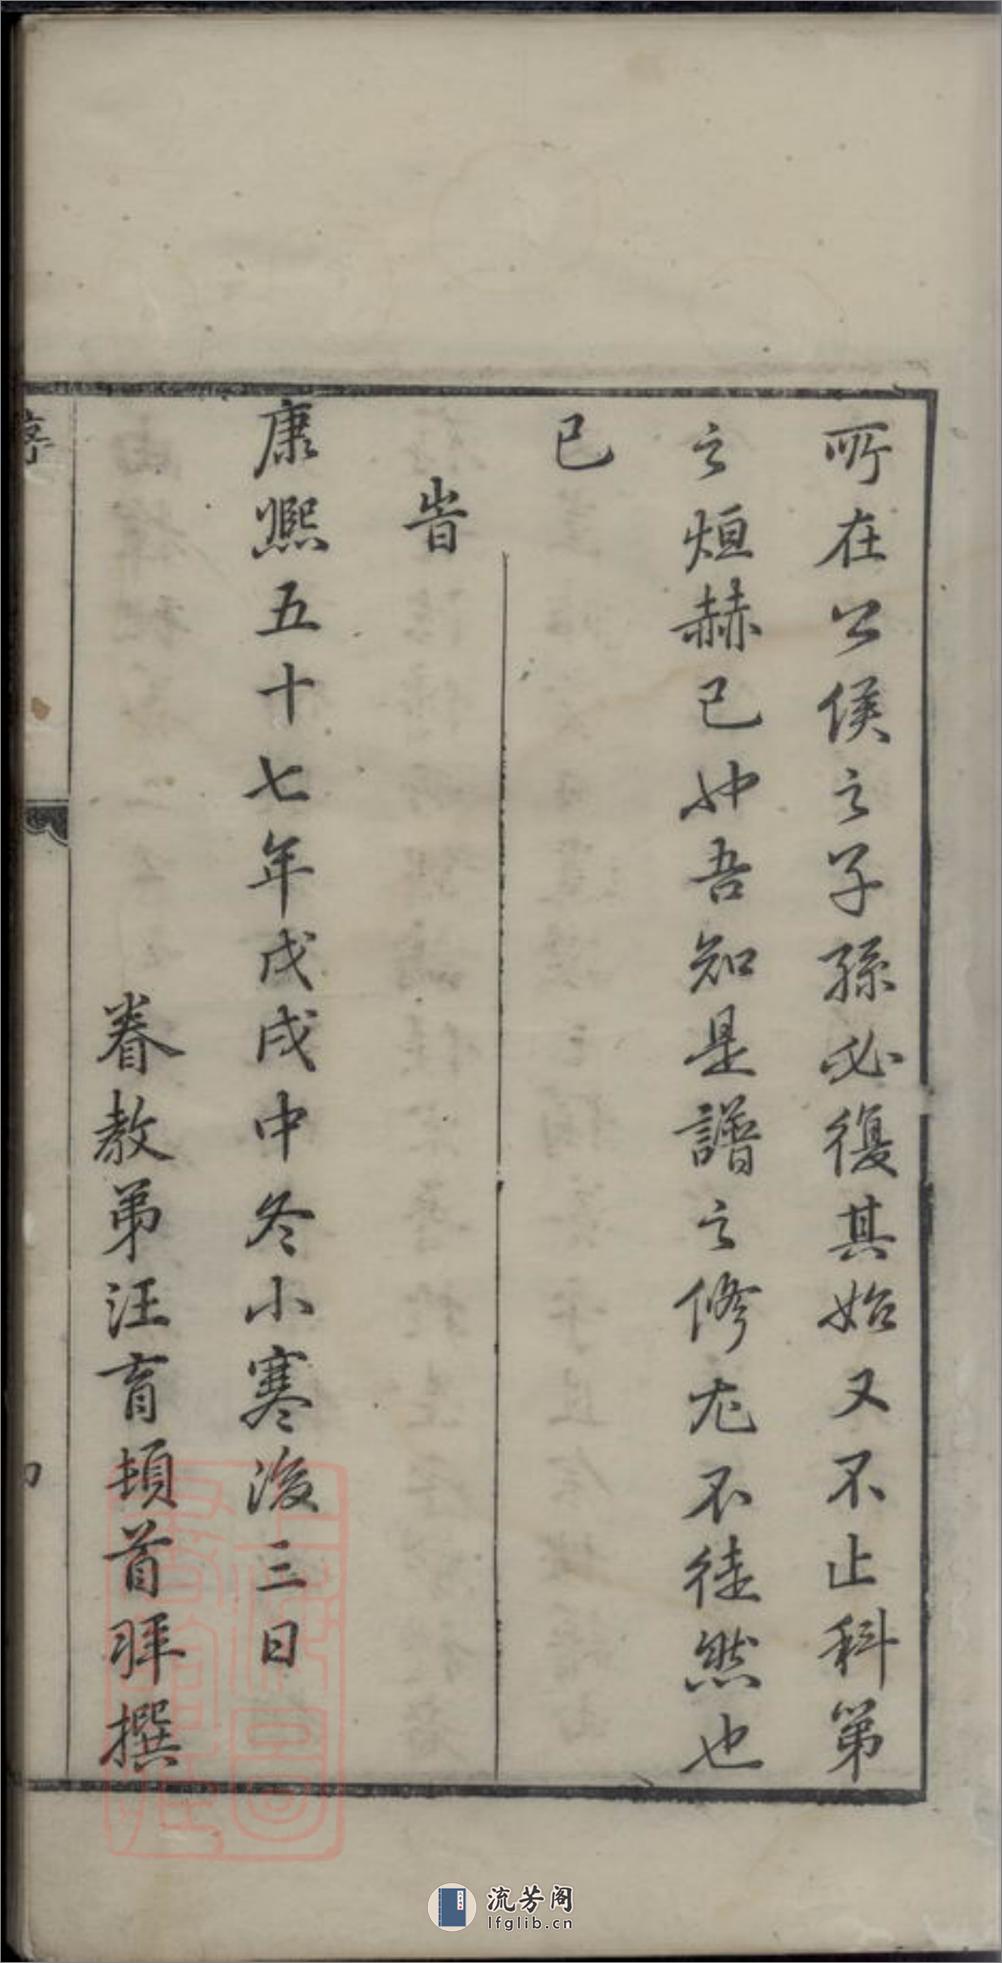 所在公侯之子孫必復其始又不止科第
之烜赫已也吾知是譜之修尤不徒然也
已
旹
康熙五十七年戊戌中冬小寒後三日
眷教弟汪育頓首拜撰
序
流芳阁
lfglib.cn